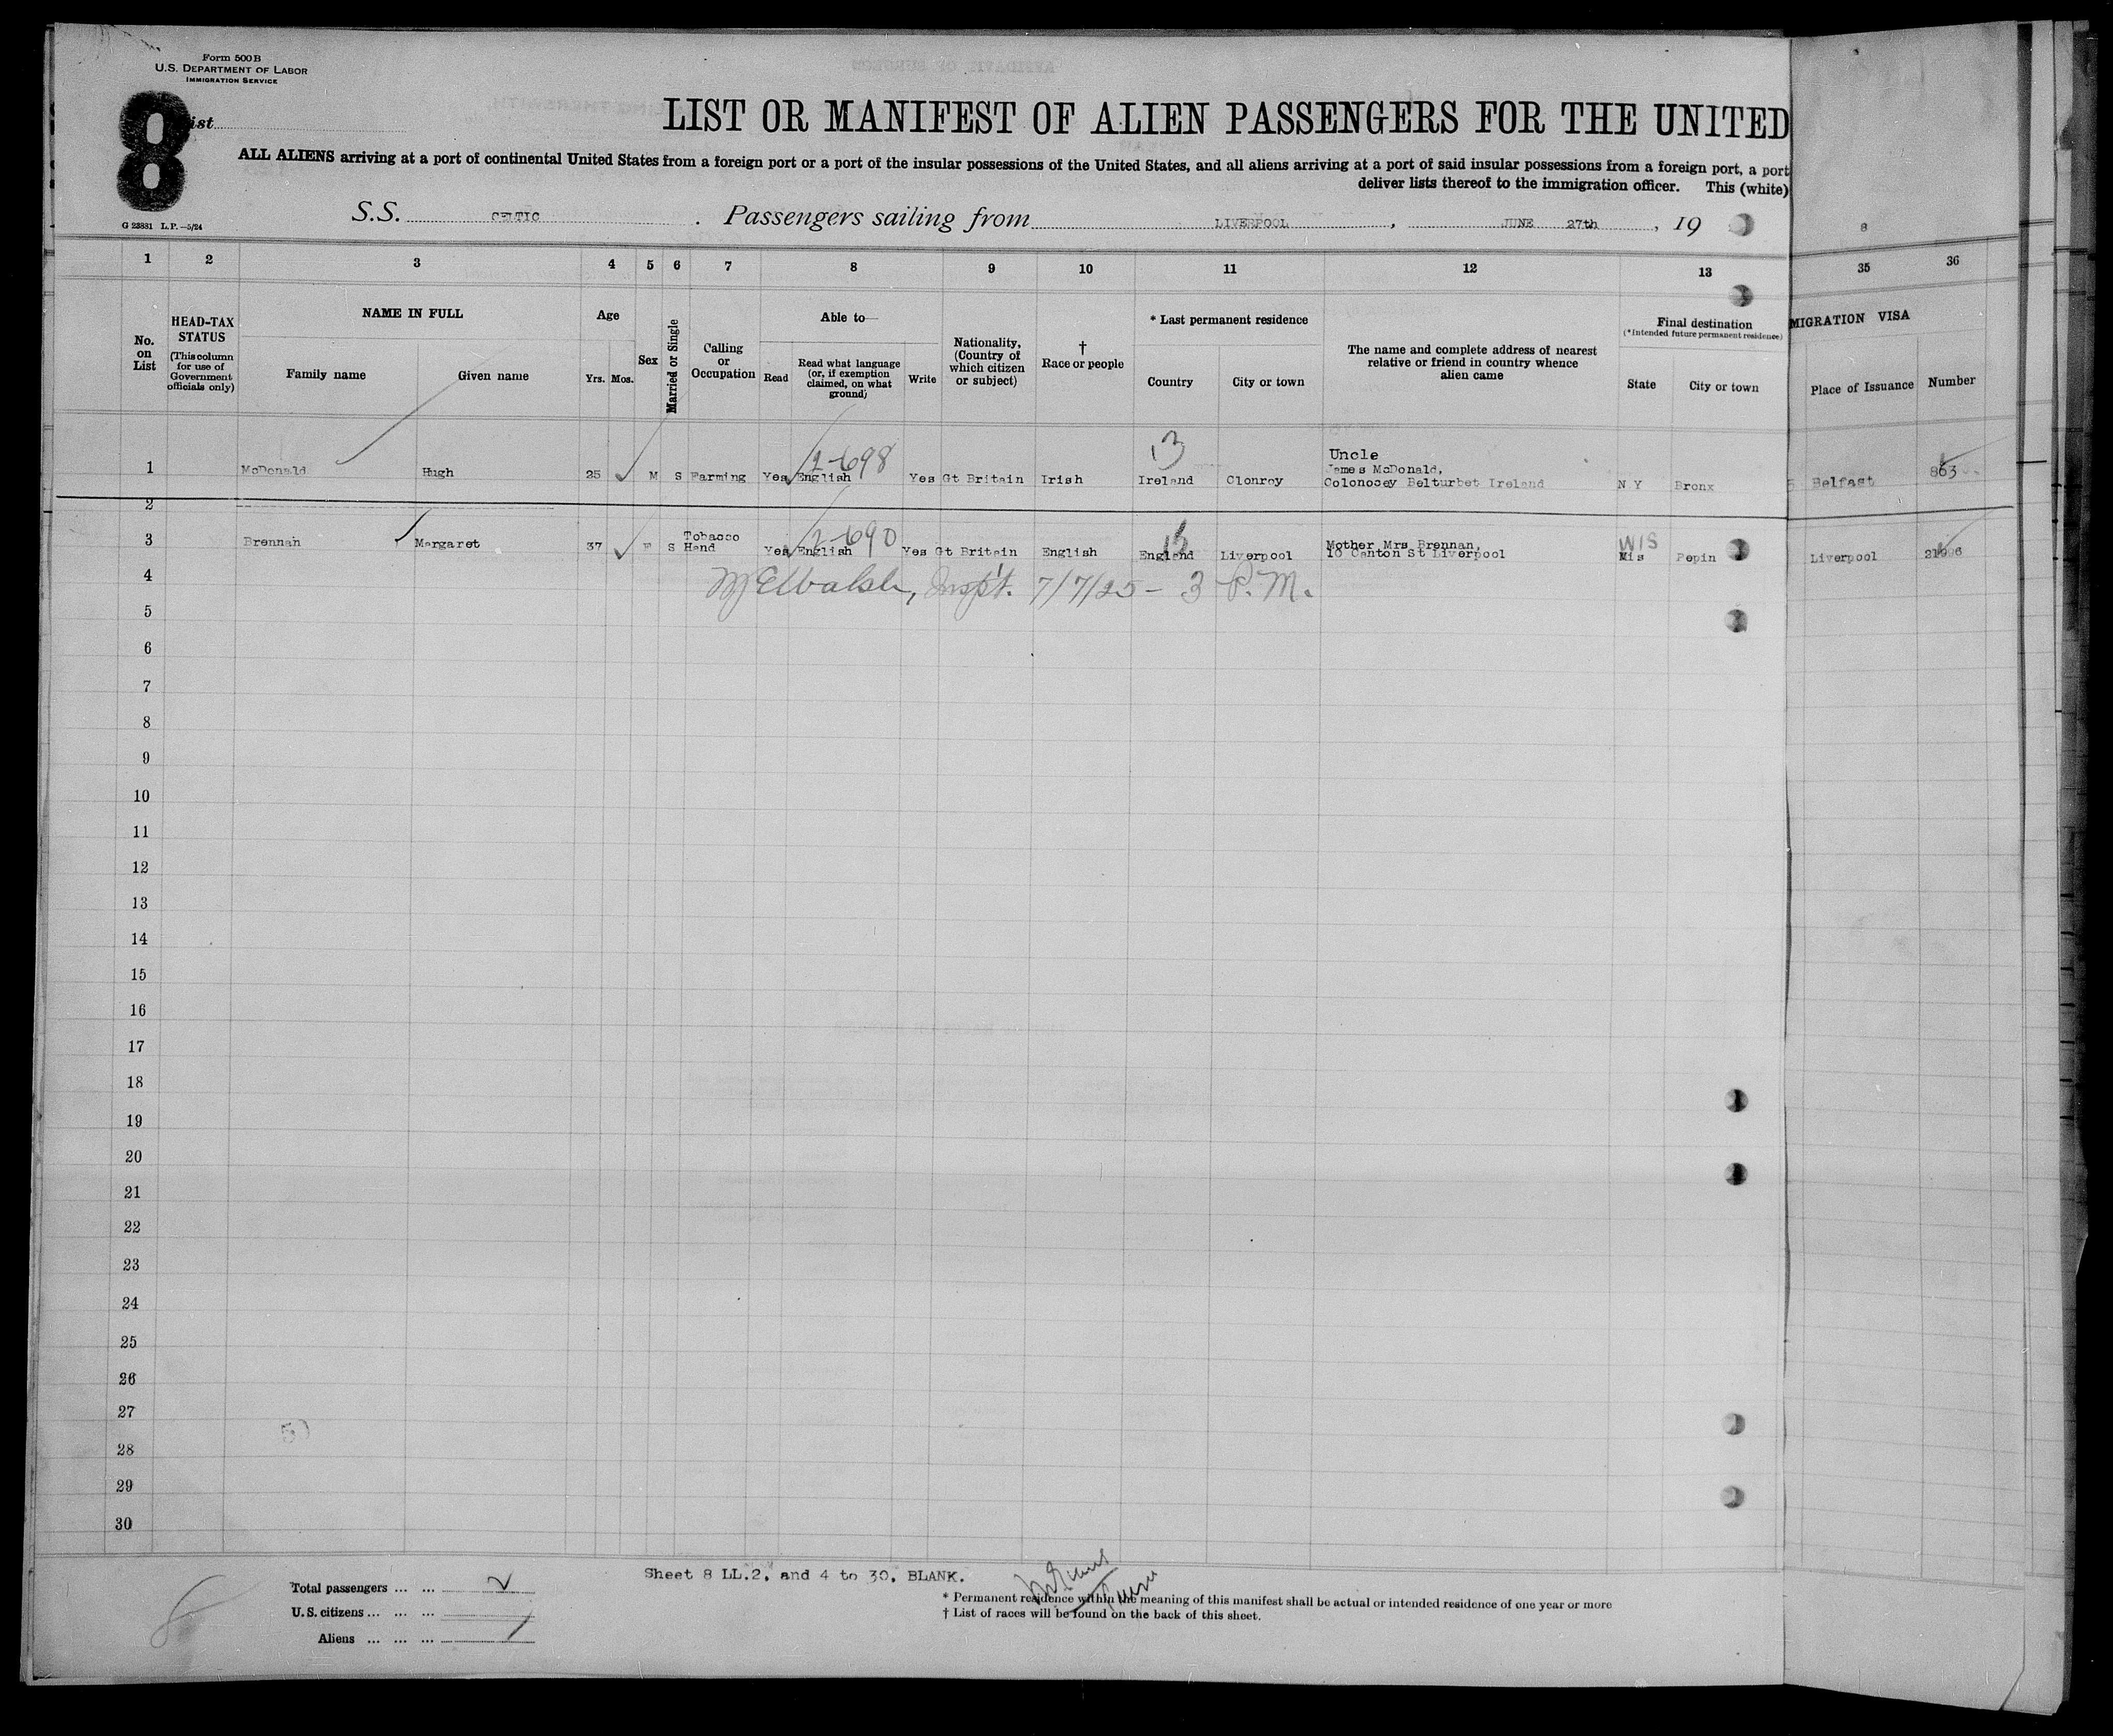 Form 500 B
U.S. DEPARTMENT OF LABOR
IMMIGRATION SERVICE
8
ist
LIST OR MANIFEST OF ALIEN PASSENGERS FOR THE UNITED
ALL ALIENS arriving at a port of continental United States from a foreign port or a port of the insular possessions of the United States, and all aliens arriving at a port of said insular possessions from a foreign port, a port
deliver lists thereof to the immigration officer. This (white)
S.S. CELTIC . Passengers sailing from LIVERPOOL , JUNE 27th , 19
G 23831 L.P.—5/24
8
1 2 3 4 5 6 7 8 9 10 11 12 13 35 36
No. on List
HEAD-TAX STATUS
(This column for use of Government officials only)
NAME IN FULL
Family name
Given name
Age
Yrs. Mos.
Sex
Married or Single
Calling or Occupation
Able to—
Read
Read what language (or, if exemption claimed, on what ground)
Write
Nationality, (Country of which citizen or subject)
†
Race or people
* Last permanent residence
Country
City or town
The name and complete address of nearest relative or friend in country whence alien came
Final destination
(*Intended future permanent residence)
State
City or town
MIGRATION VISA
Place of Issuance
Number
2-698
13
Uncle
James McDonald,
1 McDonald Hugh 25 M S Farming Yes English Yes Gt Britain Irish Ireland Clonroy Colonocey Belturbet Ireland N Y Bronx 5 Belfast 863
2
Tobacco
2-690
Mother Mrs Brennan,
WIS
3 Brennan Margaret 37 F S Hand Yes English Yes Gt Britain English England Liverpool 10 Canton St Liverpool Mis Pepin Liverpool 21996
4 Insp't. 7/7/25 - 3 P.M.
5
6
7
8
9
10
11
12
13
14
15
16
17
18
19
20
21
22
23
24
25
26
27
28
29
30
Sheet 8 LL.2, and 4 to 30, BLANK.
Total passengers ... ... 2
U.S. citizens ... ... ...
Aliens ... ... ...
8
* Permanent residence within the meaning of this manifest shall be actual or intended residence of one year or more
† List of races will be found on the back of this sheet.